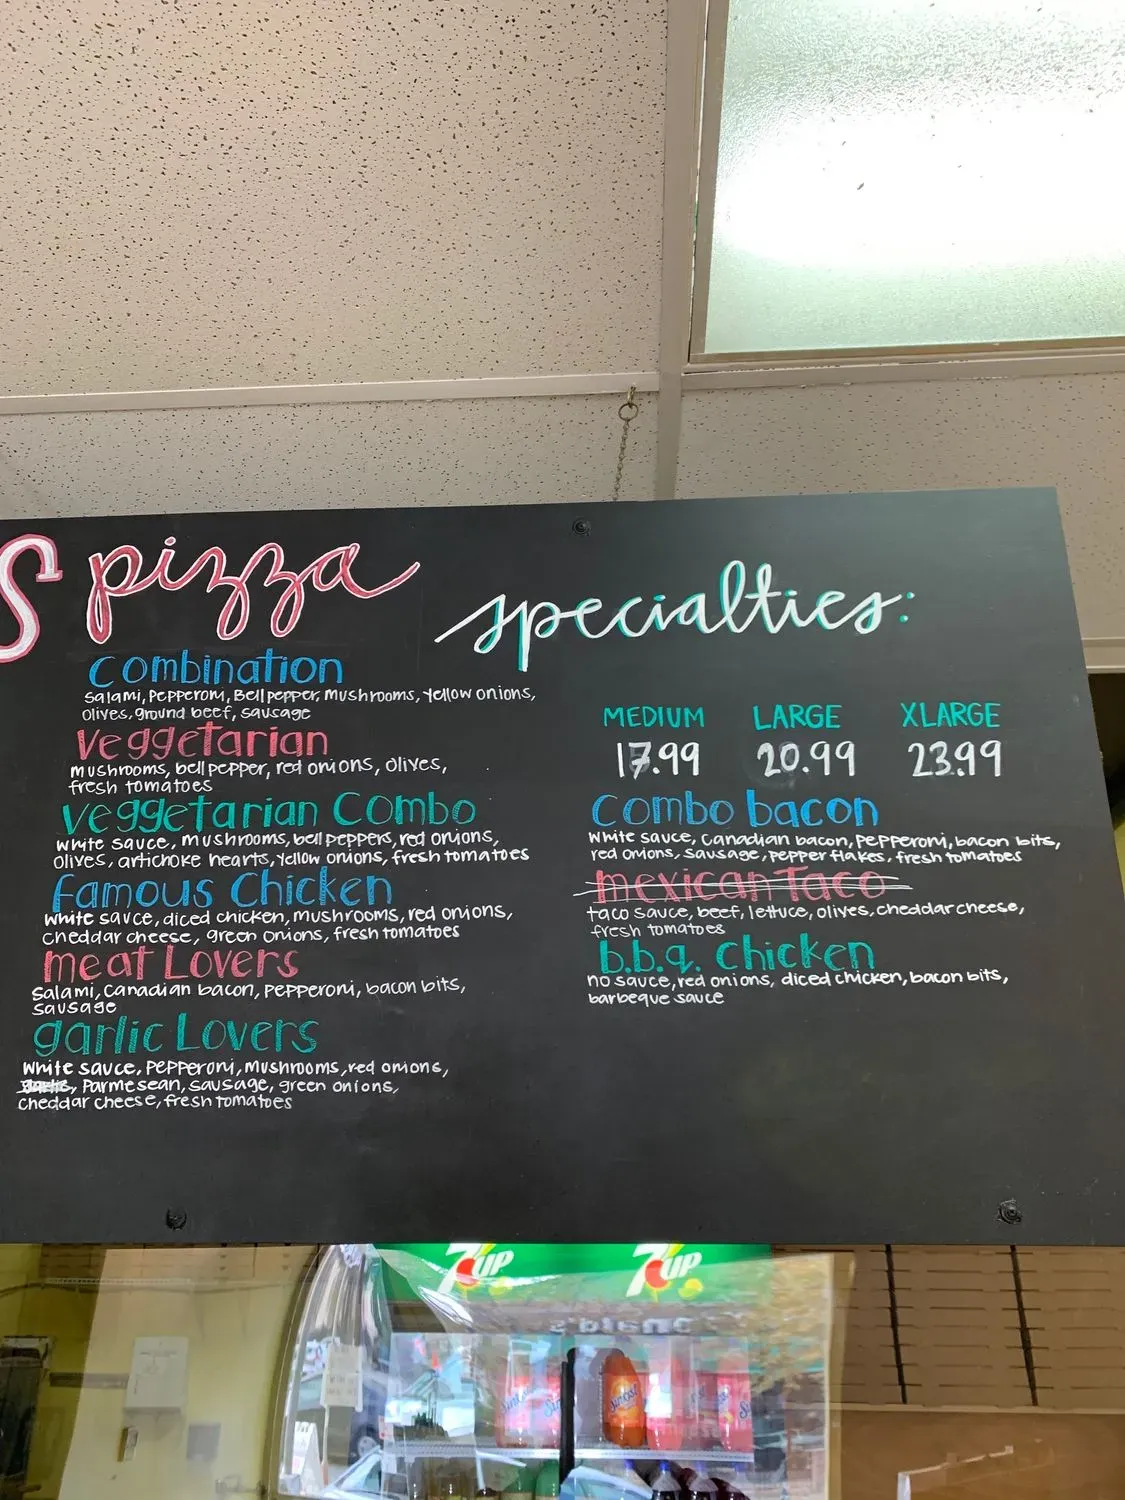 S pizza specialties:
Combination
Salami, Pepperoni, Bell pepper, Mushrooms, Yellow onions,
Olives, ground beef, sausage
Veggetarian
mushrooms, bell pepper, red onions, olives,
fresh tomatoes
Veggetarian Combo
White sauce, mushrooms, bell peppers, red onions,
Olives, artichoke hearts, Yellow onions, fresh tomatoes
Famous Chicken
White sauce, diced chicken, mushrooms, red onions,
Cheddar cheese, green onions, fresh tomatoes
meat Lovers
Salami, Canadian bacon, Pepperoni, bacon bits,
Sausage
garlic Lovers
White sauce, Pepperoni, Mushrooms, red onions,
garlic, Parmesean, Sausage, green onions,
Cheddar cheese, fresh tomatoes
MEDIUM LARGE XLARGE
17.99 20.99 23.99
Combo bacon
White sauce, Canadian bacon, Pepperoni, bacon bits,
red onions, sausage, pepper flakes, fresh tomatoes
mexican Taco
taco sauce, beef, lettuce, olives, cheddar cheese,
fresh tomatoes
b.b.q. Chicken
no sauce, red onions, diced chicken, bacon bits,
barbeque sauce
7UP 7UP
Sunkist